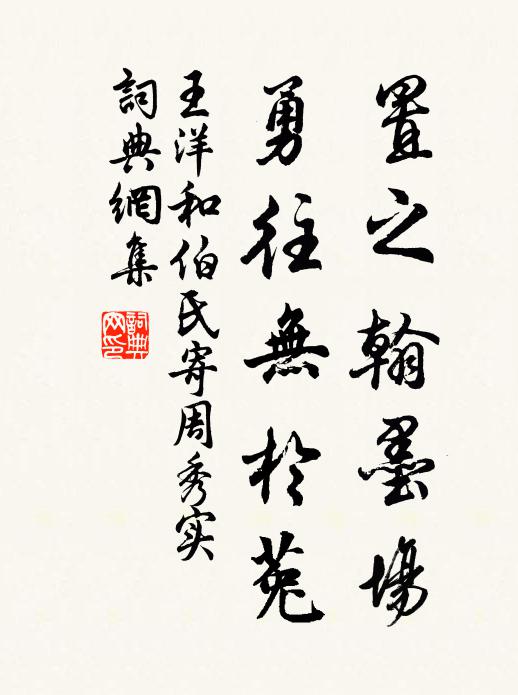 置之翰墨場
勇往無於菟
王洋和伯氏寄周秀实
詞典網集
詞典网印